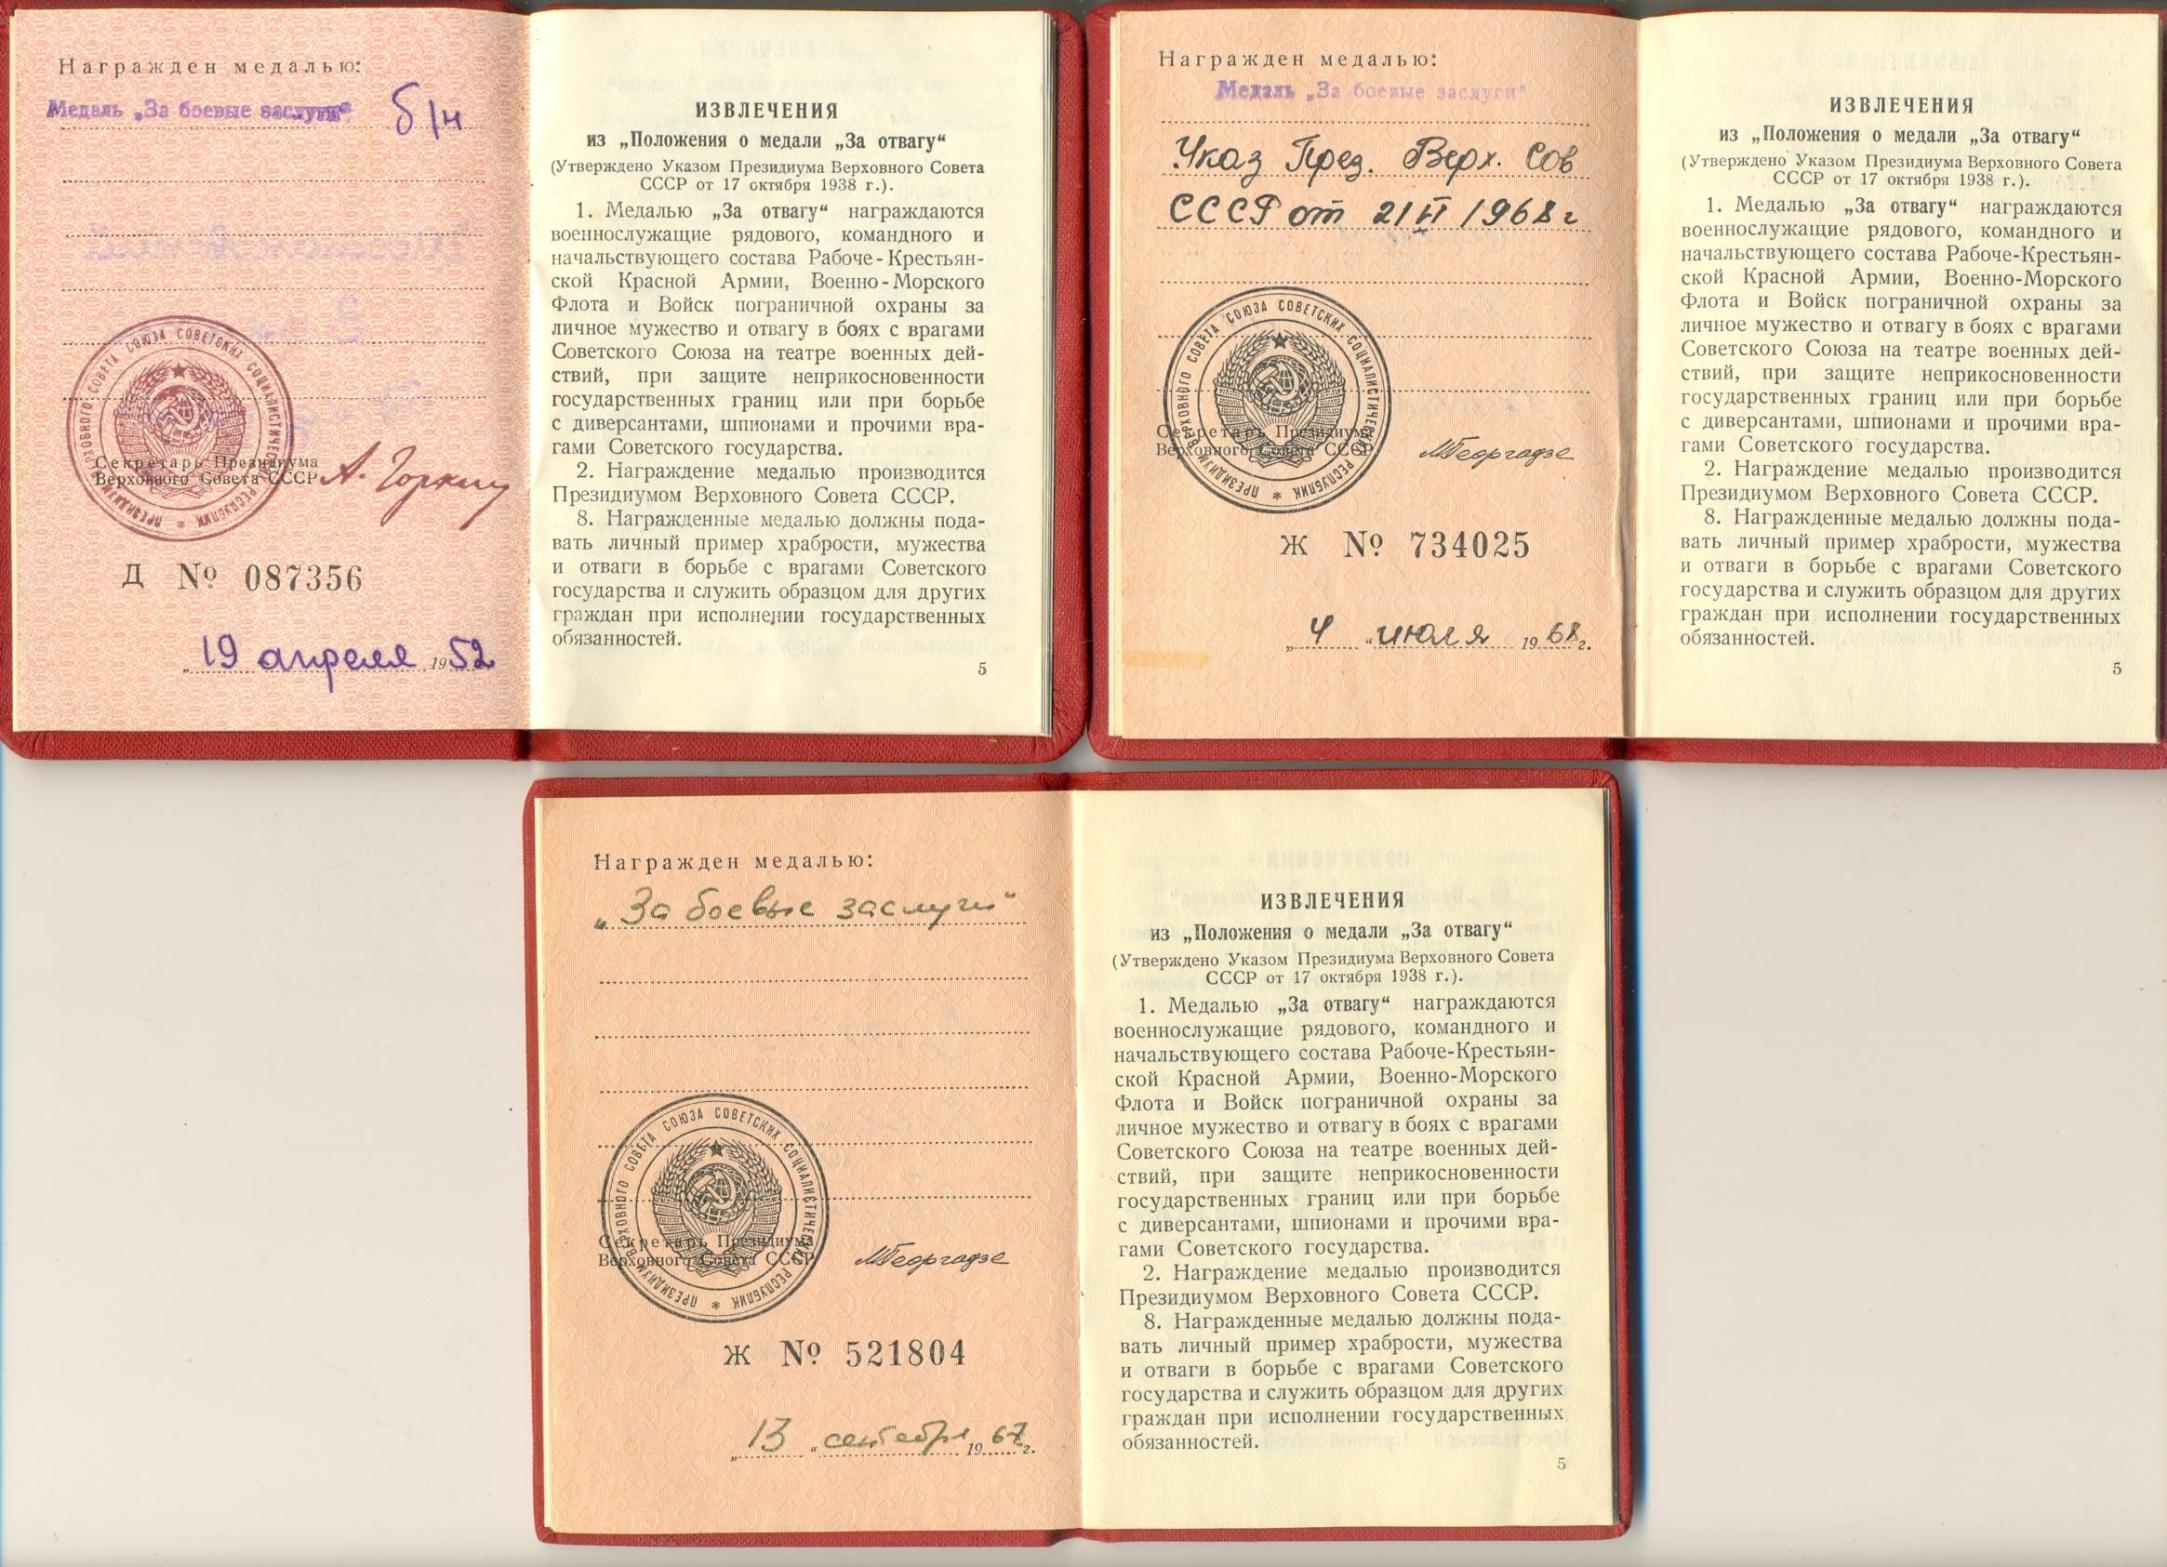 Награжден медалью:
Медаль „За боевые заслуги“ б/н
Секретарь Президиума
Верховного Совета СССР А. Горкин
ПРЕЗИДИУМ ВЕРХОВНОГО СОВЕТА СОЮЗА СОВЕТСКИХ СОЦИАЛИСТИЧЕСКИХ РЕСПУБЛИК *
Д № 087356
„19 апреля 1952
ИЗВЛЕЧЕНИЯ
из „Положения о медали „За отвагу“
(Утверждено Указом Президиума Верховного Совета
СССР от 17 октября 1938 г.).
1. Медалью „За отвагу“ награждаются
военнослужащие рядового, командного и
начальствующего состава Рабоче-Крестьян-
ской Красной Армии, Военно-Морского
Флота и Войск пограничной охраны за
личное мужество и отвагу в боях с врагами
Советского Союза на театре военных дей-
ствий, при защите неприкосновенности
государственных границ или при борьбе
с диверсантами, шпионами и прочими вра-
гами Советского государства.
2. Награждение медалью производится
Президиумом Верховного Совета СССР.
8. Награжденные медалью должны пода-
вать личный пример храбрости, мужества
и отваги в борьбе с врагами Советского
государства и служить образцом для других
граждан при исполнении государственных
обязанностей.
5
Награжден медалью:
Медаль „За боевые заслуги“
Указ През. Верх. Сов
СССР от 21 II 1968 г
ПРЕЗИДИУМ ВЕРХОВНОГО СОВЕТА СОЮЗА СОВЕТСКИХ СОЦИАЛИСТИЧЕСКИХ РЕСПУБЛИК *
Секретарь Президиума
Верховного Совета СССР МГеоргадзе
Ж № 734025
„4 “ июля 1968 г.
ИЗВЛЕЧЕНИЯ
из „Положения о медали „За отвагу“
(Утверждено Указом Президиума Верховного Совета
СССР от 17 октября 1938 г.).
1. Медалью „За отвагу“ награждаются
военнослужащие рядового, командного и
начальствующего состава Рабоче-Крестьян-
ской Красной Армии, Военно-Морского
Флота и Войск пограничной охраны за
личное мужество и отвагу в боях с врагами
Советского Союза на театре военных дей-
ствий, при защите неприкосновенности
государственных границ или при борьбе
с диверсантами, шпионами и прочими вра-
гами Советского государства.
2. Награждение медалью производится
Президиумом Верховного Совета СССР.
8. Награжденные медалью должны пода-
вать личный пример храбрости, мужества
и отваги в борьбе с врагами Советского
государства и служить образцом для других
граждан при исполнении государственных
обязанностей.
5
Награжден медалью:
„За боевые заслуги“
ПРЕЗИДИУМ ВЕРХОВНОГО СОВЕТА СОЮЗА СОВЕТСКИХ СОЦИАЛИСТИЧЕСКИХ РЕСПУБЛИК *
Секретарь Президиума
Верховного Совета СССР МГеоргадзе
Ж № 521804
„13 “ сентября 1967 г.
ИЗВЛЕЧЕНИЯ
из „Положения о медали „За отвагу“
(Утверждено Указом Президиума Верховного Совета
СССР от 17 октября 1938 г.).
1. Медалью „За отвагу“ награждаются
военнослужащие рядового, командного и
начальствующего состава Рабоче-Крестьян-
ской Красной Армии, Военно-Морского
Флота и Войск пограничной охраны за
личное мужество и отвагу в боях с врагами
Советского Союза на театре военных дей-
ствий, при защите неприкосновенности
государственных границ или при борьбе
с диверсантами, шпионами и прочими вра-
гами Советского государства.
2. Награждение медалью производится
Президиумом Верховного Совета СССР.
8. Награжденные медалью должны пода-
вать личный пример храбрости, мужества
и отваги в борьбе с врагами Советского
государства и служить образцом для других
граждан при исполнении государственных
обязанностей.
5